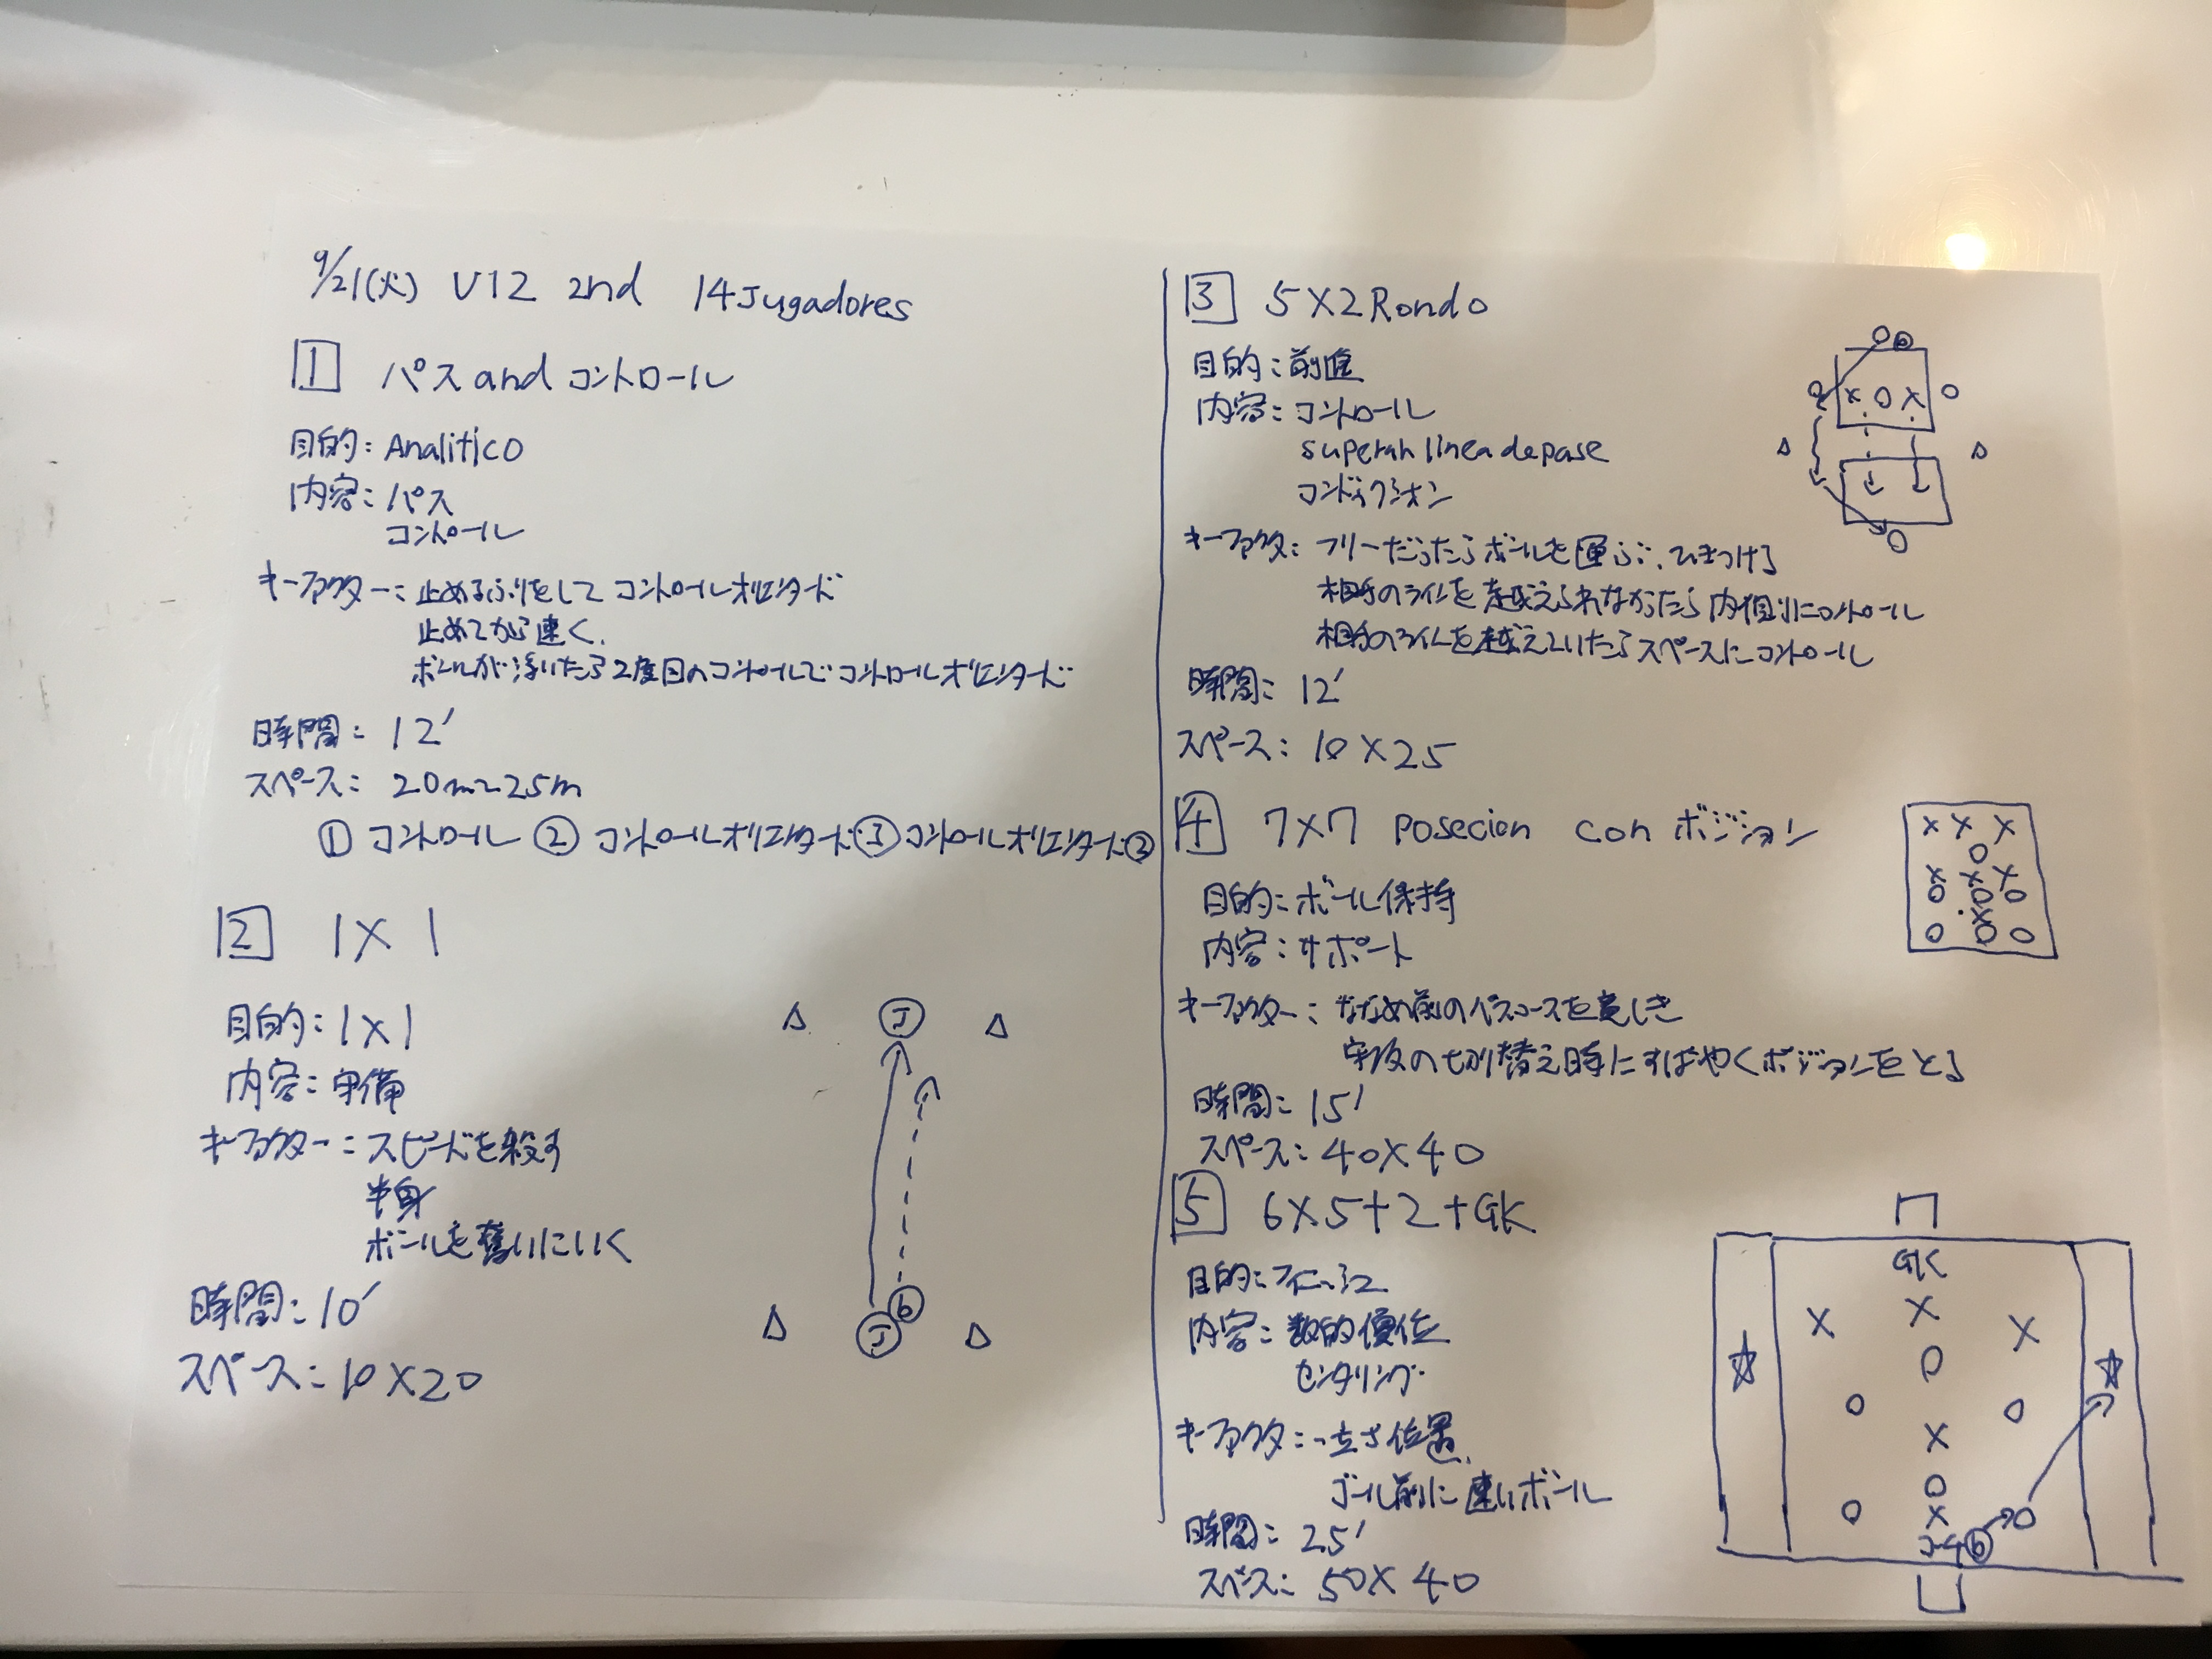 9/21(火) U12 2nd 14Jugadores
1 パス and コントロール
目的: Analitico
内容: パス
コントロール
キーファクター: 止めるふりをして コントロールオリエンタード
止めてから速く.
ボールが浮いたら2度目のコントロールでコントロールオリエンタード
時間: 12'
スペース: 20m~25m
① コントロール ② コントロールオリエンタード ③ コントロールオリエンタード②
2 1×1
目的: 1×1
内容: 守備
キーファクター: スピードを殺す
半身
ボールを奪いにいく
時間: 10'
スペース: 10×20
J
J b
3 5×2 Rondo
目的: 前進
内容: コントロール
linea de pase
コンドゥクシオン
キーファクタ: フリーだったらボールを運ぶ. ひきつける
相手のラインを越えられなかったら内側にコントロール
相手のラインを越えていたらスペースにコントロール
時間: 12'
スペース: 10×25
4 7×7 posecion con ポジション
目的: ボール保持
内容: サポート
キーファクター: ななめ前のパスコースを意しき
の切り替え時にすばやくポジションをとる
時間: 15'
スペース: 40×40
5 6×5+2+GK
目的: フィニッシュ
内容: 数的優位
センタリング
キーファクタ: 立ち位置.
ゴール前に速いボール
時間: 25'
スペース: 50×40
GK
b